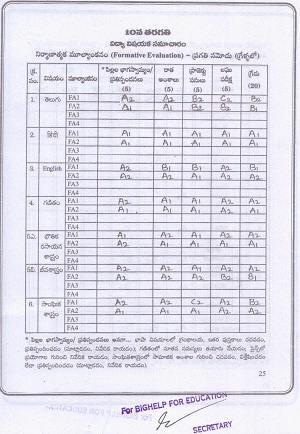 10వ తరగతి
విద్యా విషయక సమాచారం
నిర్మాణాత్మక మూల్యాంకనం (Formative Evaluation) – ప్రగతి నమోదు (గ్రేడ్లలో)
క్ర. నం. విషయం మూల్యాంకనం * పిల్లల భాగస్వామ్యం/ ప్రతిస్పందనలు (5) రాత అంశాలు (5) ప్రాజెక్టు పనులు (5) లఘు పరీక్ష (5) గ్రేడు (20)
1. తెలుగు FA1 A2 A2 B2 C2 B2
FA2 A1 A1 B2 B2 B1
FA3
FA4
2. హిందీ FA1 A1 A1 A1 A1 A1
FA2 A1 A1 A1 A1 A1
FA3
FA4
3. English FA1 A2 B1 B1 A2 B1
FA2 A2 A2 A1 A2 A2
FA3
FA4
4. గణితం FA1 A2 A2 A1 A2 A2
FA2 A1 A1 A1 A2 A1
FA3
FA4
5ఎ. భౌతిక రసాయన శాస్త్రం FA1 A1 A2 A1 A2 A2
FA2 A2 A1 A1 A1 A1
FA3
FA4
5బి. జీవశాస్త్రం FA1 A2 A2 A1 A2 A2
FA2 A2 A2 A2 B2 B1
FA3
FA4
6. సాంఘిక శాస్త్రం FA1 A2 A2 C2 A2 B2
FA2 A2 A1 A1 A2 A2
FA3
FA4
25
For BIGHELP FOR EDUCATION
SECRETARY